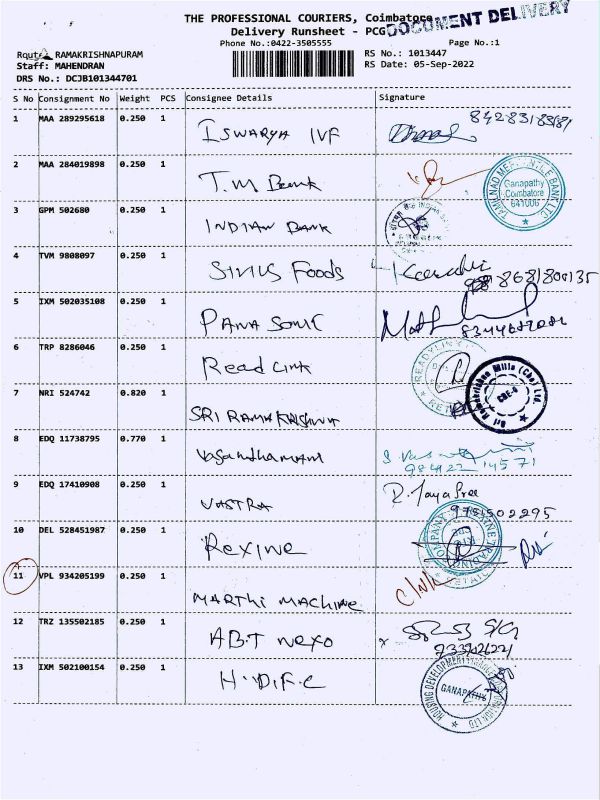 THE PROFESSIONAL COURIERS, Coimbatore
DOCUMENT DELIVERY
Delivery Runsheet - PCG
Phone No.:0422-3505555 Page No.:1
Route: RAMAKRISHNAPURAM RS No.: 1013447
Staff: MAHENDRAN RS Date: 05-Sep-2022
DRS No.: DCJB101344701
S No Consignment No Weight PCS Consignee Details Signature
1 MAA 289295618 0.250 1 ISWARYA IVF
2 MAA 284019898 0.250 1 T.M Bank TAMILNAD MERCANTILE BANK LTD. Ganapathy Coimbatore 641006
3 GPM 502680 0.250 1 INDIAN BANK
4 TVM 9808097 0.250 1 SIVUS Foods
5 IXM 502035108 0.250 1 PANA SONIC
6 TRP 8286046 0.250 1 Read Link READYLINK
7 NRI 524742 0.820 1 SRI RAMA KRISHNA Sri Ramakrishna Mills (Cbe) Ltd. CBE-6
8 EDQ 11738795 0.770 1 Vasandhamani 984122 14571
9 EDQ 17410908 0.250 1 VASTRA R. Jaya Sree
10 DEL 528451987 0.250 1 Rexine
11 VPL 934205199 0.250 1 MARTHI MACHINE
12 TRZ 135502185 0.250 1 A.B.T nexo
13 IXM 502100154 0.250 1 H.D.F.C HOUSING DEVELOPMENT GANAPATHY